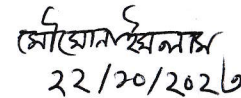 মৌমোনা ইসলাম
২২/১০/২০২৩